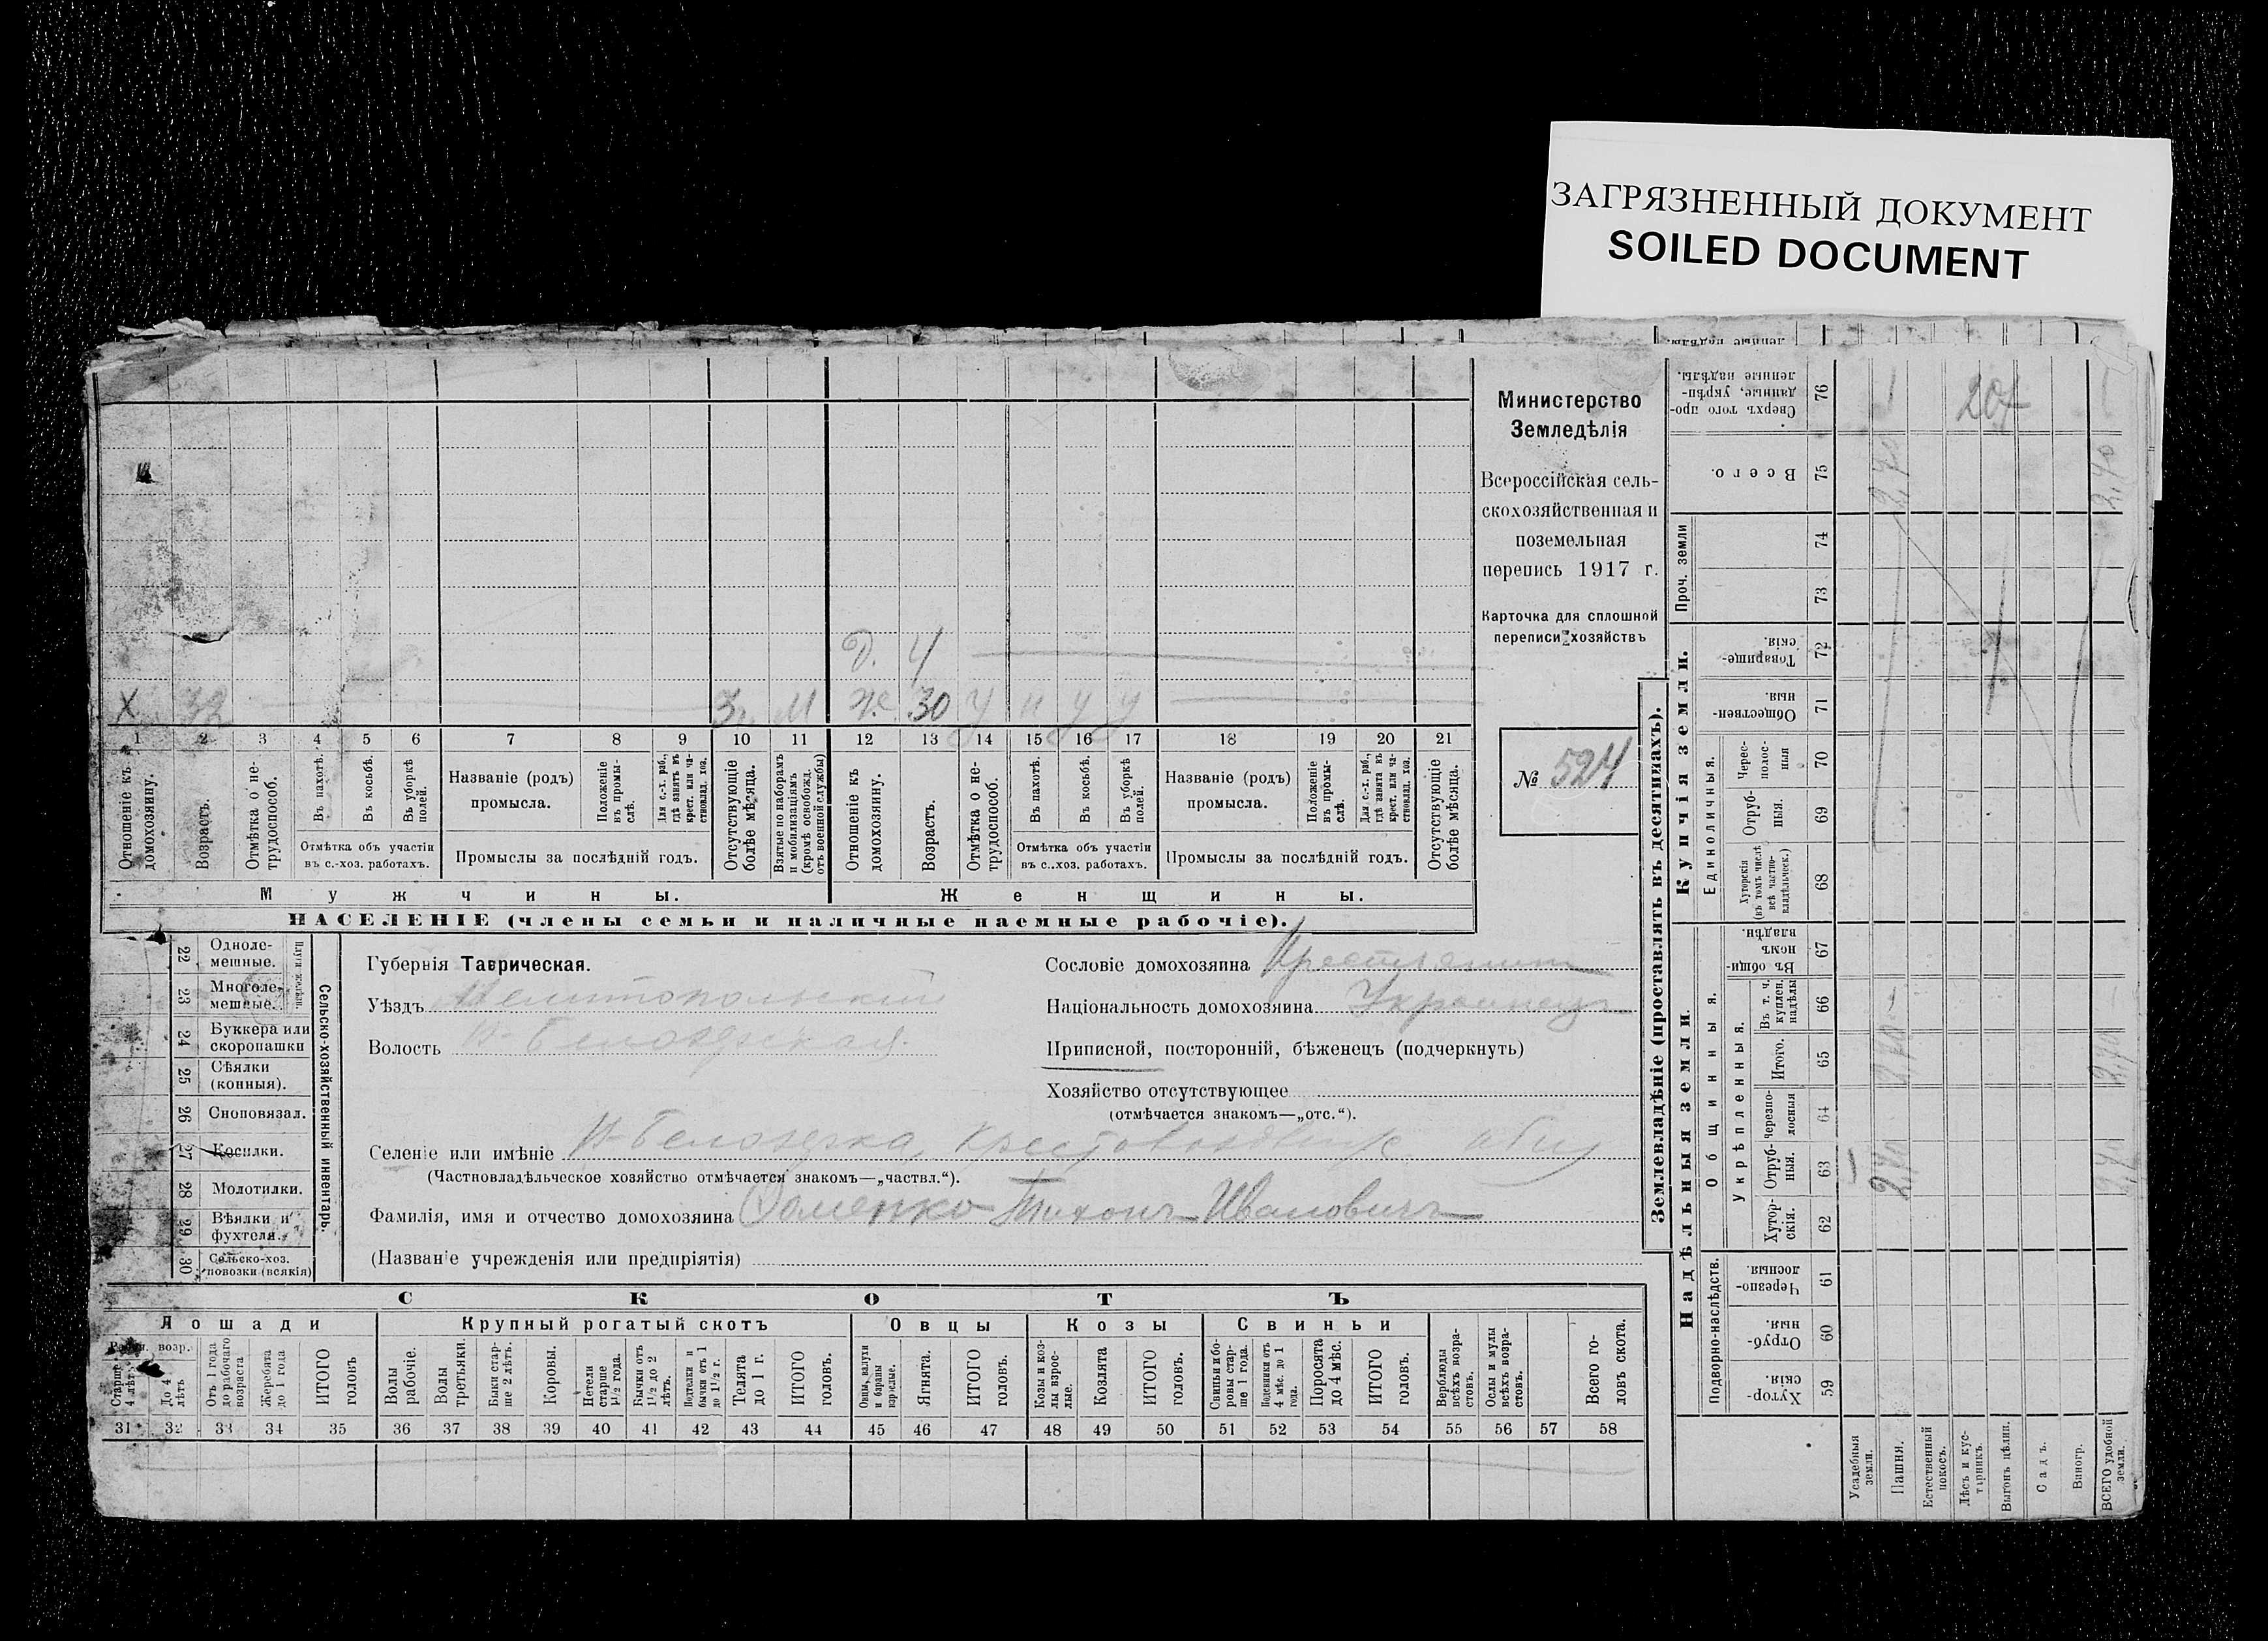 ЗАГРЯЗНЕННЫЙ ДОКУМЕНТ
SOILED DOCUMENT
Министерство
Земледѣлія
Всероссійская сель-
скохозяйственная и
поземельная
перепись 1917 г.
Карточка для сплошной
переписи хозяйствъ
№ 524
Д. 4
Х 32 З. М Ж. 30 У н у у
1 2 3 4 5 6 7 8 9 10 11 12 13 14 15 16 17 18 19 20 21
Отношеніе къ домохозяину.
Возрастъ.
Отмѣтка о не-трудоспособ.
Въ пахотѣ.
Въ косьбѣ.
Въ уборкѣ полей.
Отмѣтка объ участіи
въ с.-хоз. работахъ.
Названіе (родъ)
промысла.
Положеніе въ промы-слѣ.
Для с.-х. раб., гдѣ занятъ въ крест. или ча-стновлад. хоз.
Промыслы за послѣдній годъ.
Отсутствующіе болѣе мѣсяца.
Взятые по наборамъ и мобилизаціямъ (кромѣ освобожд. отъ военной службы)
Отношеніе къ домохозяину.
Возрастъ.
Отмѣтка о не-трудоспособ.
Въ пахотѣ.
Въ косьбѣ.
Въ уборкѣ полей.
Отмѣтка объ участіи
въ с..хоз. работахъ.
Названіе (родъ)
промысла.
Положеніе въ промы-слѣ.
Для с.-х. раб., гдѣ занята въ крест. или ча-стновлад. хоз.
Промыслы за послѣдній годъ.
Отсутствующіе болѣе мѣсяца.
Мужчины. Женщины.
НАСЕЛЕНІЕ (члены семьи и наличные наемные рабочіе).
Сельско-хозяйственный инвентарь.
22 Одноле-мешные.
23 Многоле-мешные.
24 Буккера или скоропашки
25 Сѣялки (конныя).
26 Сноповязал.
27 Косилки.
28 Молотилки.
29 Вѣялки и фухтеля.
30 Сельско-хоз. повозки (всякія)
Губернія Таврическая.
Уѣздъ Мелитопольскій
Волость Н-Белозерская
Сословіе домохозяина Крестьянин
Національность домохозяина Украинец
Приписной, посторонній, бѣженецъ (подчеркнуть)
Хозяйство отсутствующее
(отмѣчается знакомъ—„отс.“).
Селеніе или имѣніе Н-Белозерка
(Частновладѣльческое хозяйство отмѣчается знакомъ—„частвл.“).
Фамилія, имя и отчество домохозяина Доменко Тихонъ Ивановичъ
(Названіе учрежденія или предпріятія)
СКОТЪ
Лошади Крупный рогатый скотъ Овцы Козы Свиньи
Рабоч. возр.
Старше 4 лѣтъ
До 4 лѣтъ
Отъ 1 года до рабочаго возраста
Жеребята до 1 года
ИТОГО головъ
Волы рабочіе.
Волы третьяки.
Быки стар-ше 2 лѣтъ.
Коровы.
Нетели старше 1½ года.
Бычки отъ 1½ до 2 лѣтъ.
Подтелки и бычки отъ 1 до 1½ г.
Телята до 1 г.
ИТОГО головъ.
Овцы, валухи и бараны взрослые.
Ягнята.
ИТОГО головъ.
Козы и коз-лы взрос-лые.
Козлята
ИТОГО головъ.
Свиньи и бо-ровы стар-ше 1 года.
Подсвинки отъ 4 мѣс. до 1 года.
Поросята до 4 мѣс.
ИТОГО головъ.
Верблюды всѣхъ возра-стовъ.
Ослы и мулы всѣхъ возра-стовъ.
Всего го-ловъ скота.
31 32 33 34 35 36 37 38 39 40 41 42 43 44 45 46 47 48 49 50 51 52 53 54 55 56 57 58
Землевладѣніе (проставлять въ десятинахъ).
Надѣльныя земли.
Купчія земли.
Проч. земли
Подворно-наслѣдств.
Общинныя.
Укрѣпленныя.
Единоличныя.
Хутор-скія. 59
Отруб-ныя. 60
Черезпо-лосныя 61
Хутор-скія. 62
Отруб-ныя. 63
Черезпо-лосныя 64
Итого. 65
Въ т. ч. куплен. надѣлы 66
Въ общин-номъ владѣн. 67
Хуторскія (въ томъ числѣ всѣ частно-владѣльческ.) 68
Отруб-ныя. 69
Черес-полос-ныя 70
Обществен-ныя. 71
Товарище-скія. 72
73
74
Всего. 75
Сверхъ того про-данные, укрѣп-ленные надѣлы. 76
Усадебныя земли.
Пашня.
Естественный покосъ.
Лѣсъ и кус-тарникъ.
Выгонъ цѣлин.
Садъ.
Виногр.
ВСЕГО удобной земли.
2,70
2,70
2,70
2,70
2,70
2,70